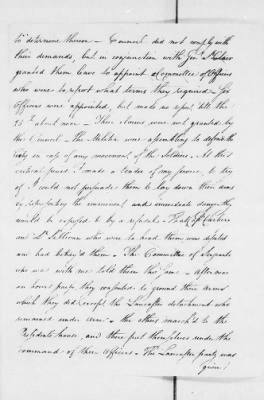 to determine thereon — Council did not comply with
their demands, but in conjunction with Genl
granted them leave to appoint a Committee of Officers
who were to report what terms they required — Six
Officers were appointed, but made no report till the
25th about noon — Their terms were not granted by
the Council — The Militia were assembling to defend the
City in case of any movement of the Soldiers. At this
critical period I made a tender of my service, to try
if I could not persuade them to lay down their arms
by representing the immediate danger they
would be exposed to by a refusal — That Carbery
and Lt. Sullivan who were to head them, was defeated
and had betray'd them — The Committee of Serjeants
who was with me told them this same — After an
hours pause they consented to ground their arms
which they did except the Lancaster detachment who
remained under arms — the others march'd to the
Presidents house, and there put themselves under the
command of their Officers — The Lancaster party was
(given)